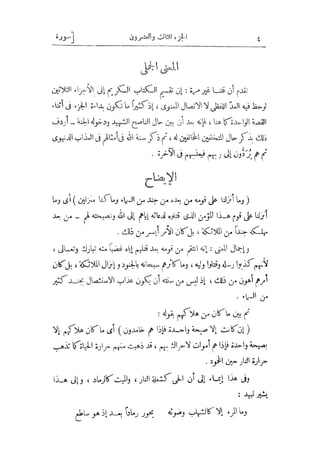 ٤ الجزء الثالث والعشرون [سورة
المعنى الجملى
تقدم أن قلنا غير مرة : إن تقسيم الكتاب الكريم إلى الأجزاء الثلاثين
لوحظ فيه العدّ اللفظى لا الاتصال المعنوى ، إذ كثيرا ما تكون بداءة الجزء فى أثناء
القصة الواحدة كما هنا ، فإنه بعد أن بين حال الناصح الشهيد ودخوله الجنة – أردف
ذلك بذكر حال المتخلفين المخالفين له ، ثم ذكر سنة الله فى أمثالهم فى العذاب الدنيوى
ثم هم يُردُّون إلى ربهم فيعذبهم فى الآخرة .
الإيضاح
( وما أنزلنا على قومه من بعده من جند من السماء وما كنا منزلين ) أى وما
أنزلنا على قوم هذا المؤمن الذى قتلوه لدعائه إياهم إلى الله ونصيحته لهم – من بعد
مهلكه جندا من الملائكة ، بل كان الأمر أيسر من ذلك .
وإجمال المعنى : إنه انتقم من قومه بعد قتلهم إياه غضبا منه تبارك وتعالى ،
لأنهم كذبوا رسله وقتلوا وليه ، وما كاثرهم سبحانه بالجنود وإنزال الملائكة ، بل كان
أمرهم أهون من ذلك ، إذ ليس من سنته أن يكون عذاب الاستئصال بجند كثير
من السماء .
ثم بين ما كان من هلاكهم بقوله :
( إن كانت إلا صيحة واحدة فإذا هم خامدون ) أى ما كان هلاكهم إلا
بصيحة واحدة فإذا هم أموات لاحراك بهم ، قد ذهبت منهم حرارة الحياة كما تذهب
حرارة النار حين الخمود .
وفى هذا إيماء إلى أن الحى كشعلة النار ، والميت كالرماد ، وإلى هذا
يشير لبيد :
وما المرء إلا كالشهاب وضوئه يحور رمادا بعد إذ هو ساطع